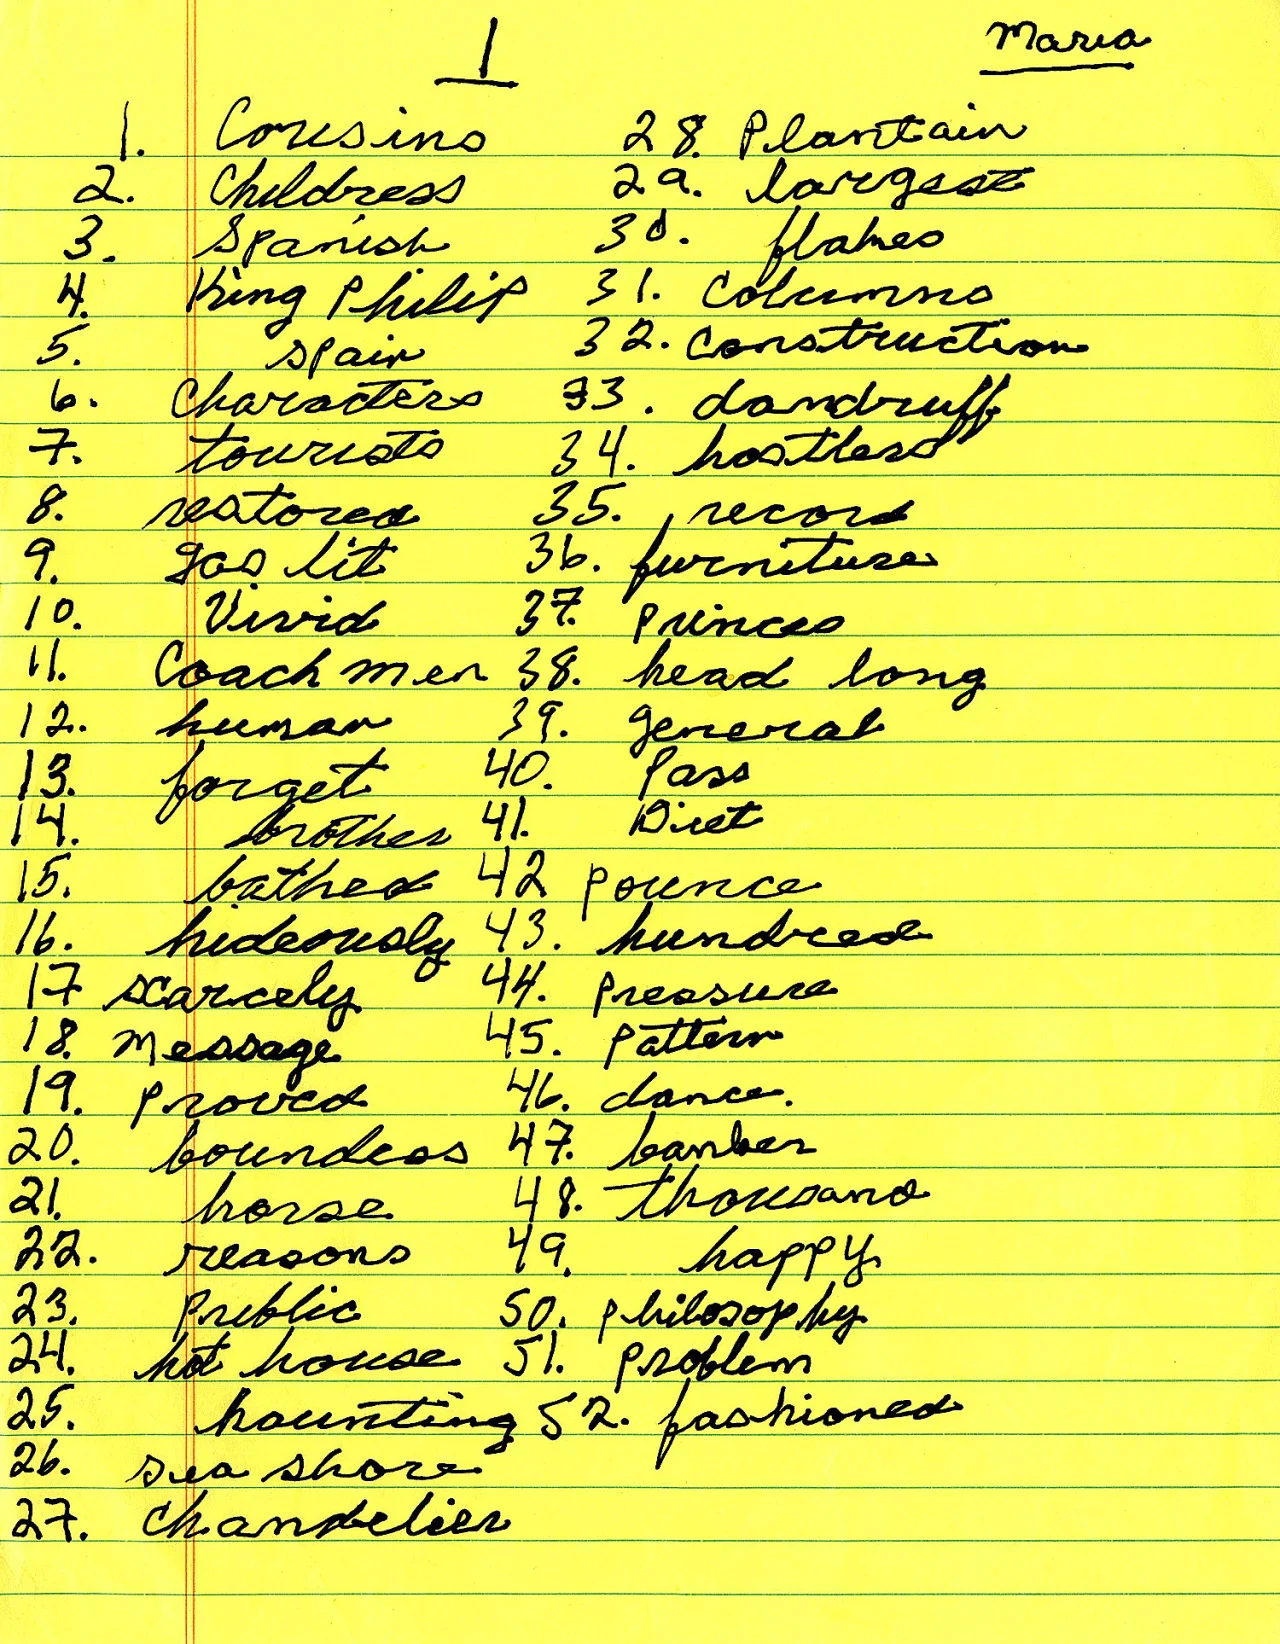 1 Maria
1. Cousins 28. Plantain
2. Childress 29. largest
3. Spanish 30. flakes
4. King Philip 31. Columns
5. Spain 32. Construction
6. Characters 33. dandruff
7. tourists 34. hostless
8. restored 35. record
9. gas lit 36. furniture
10. Vivid 37. Princes
11. Coach men 38. head long
12. human 39. general
13. forget 40. Pass
14. brother 41. Diet
15. bathed 42 pounce
16. hideously 43. hundred
17 scarcely 44. pressure
18. Message 45. Pattern
19. proved 46. dance.
20. boundess 47. banker
21. horse 48. thousand
22. reasons 49. happy
23. Public 50. philosophy
24. hot house 51. problem
25. haunting 52. fashioned
26. sea shore
27. Chandelier